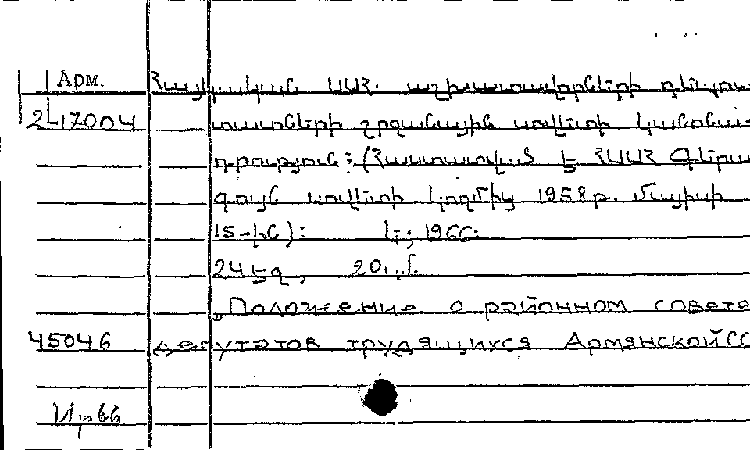 Арм. Հայկական ՍՍՀ աշխատավորների դեպու-
2-17004 տատների շրջանային սովետի կանոնա-
դրություն: (Հաստատված է ՀՍՍՀ Գերա-
գույն սովետի կողմից 1958թ. մայիսի
15-ին): Ե., 1966.
24 էջ, 20
„Положение о районном совете
45046 депутатов трудящихся Армянской СС